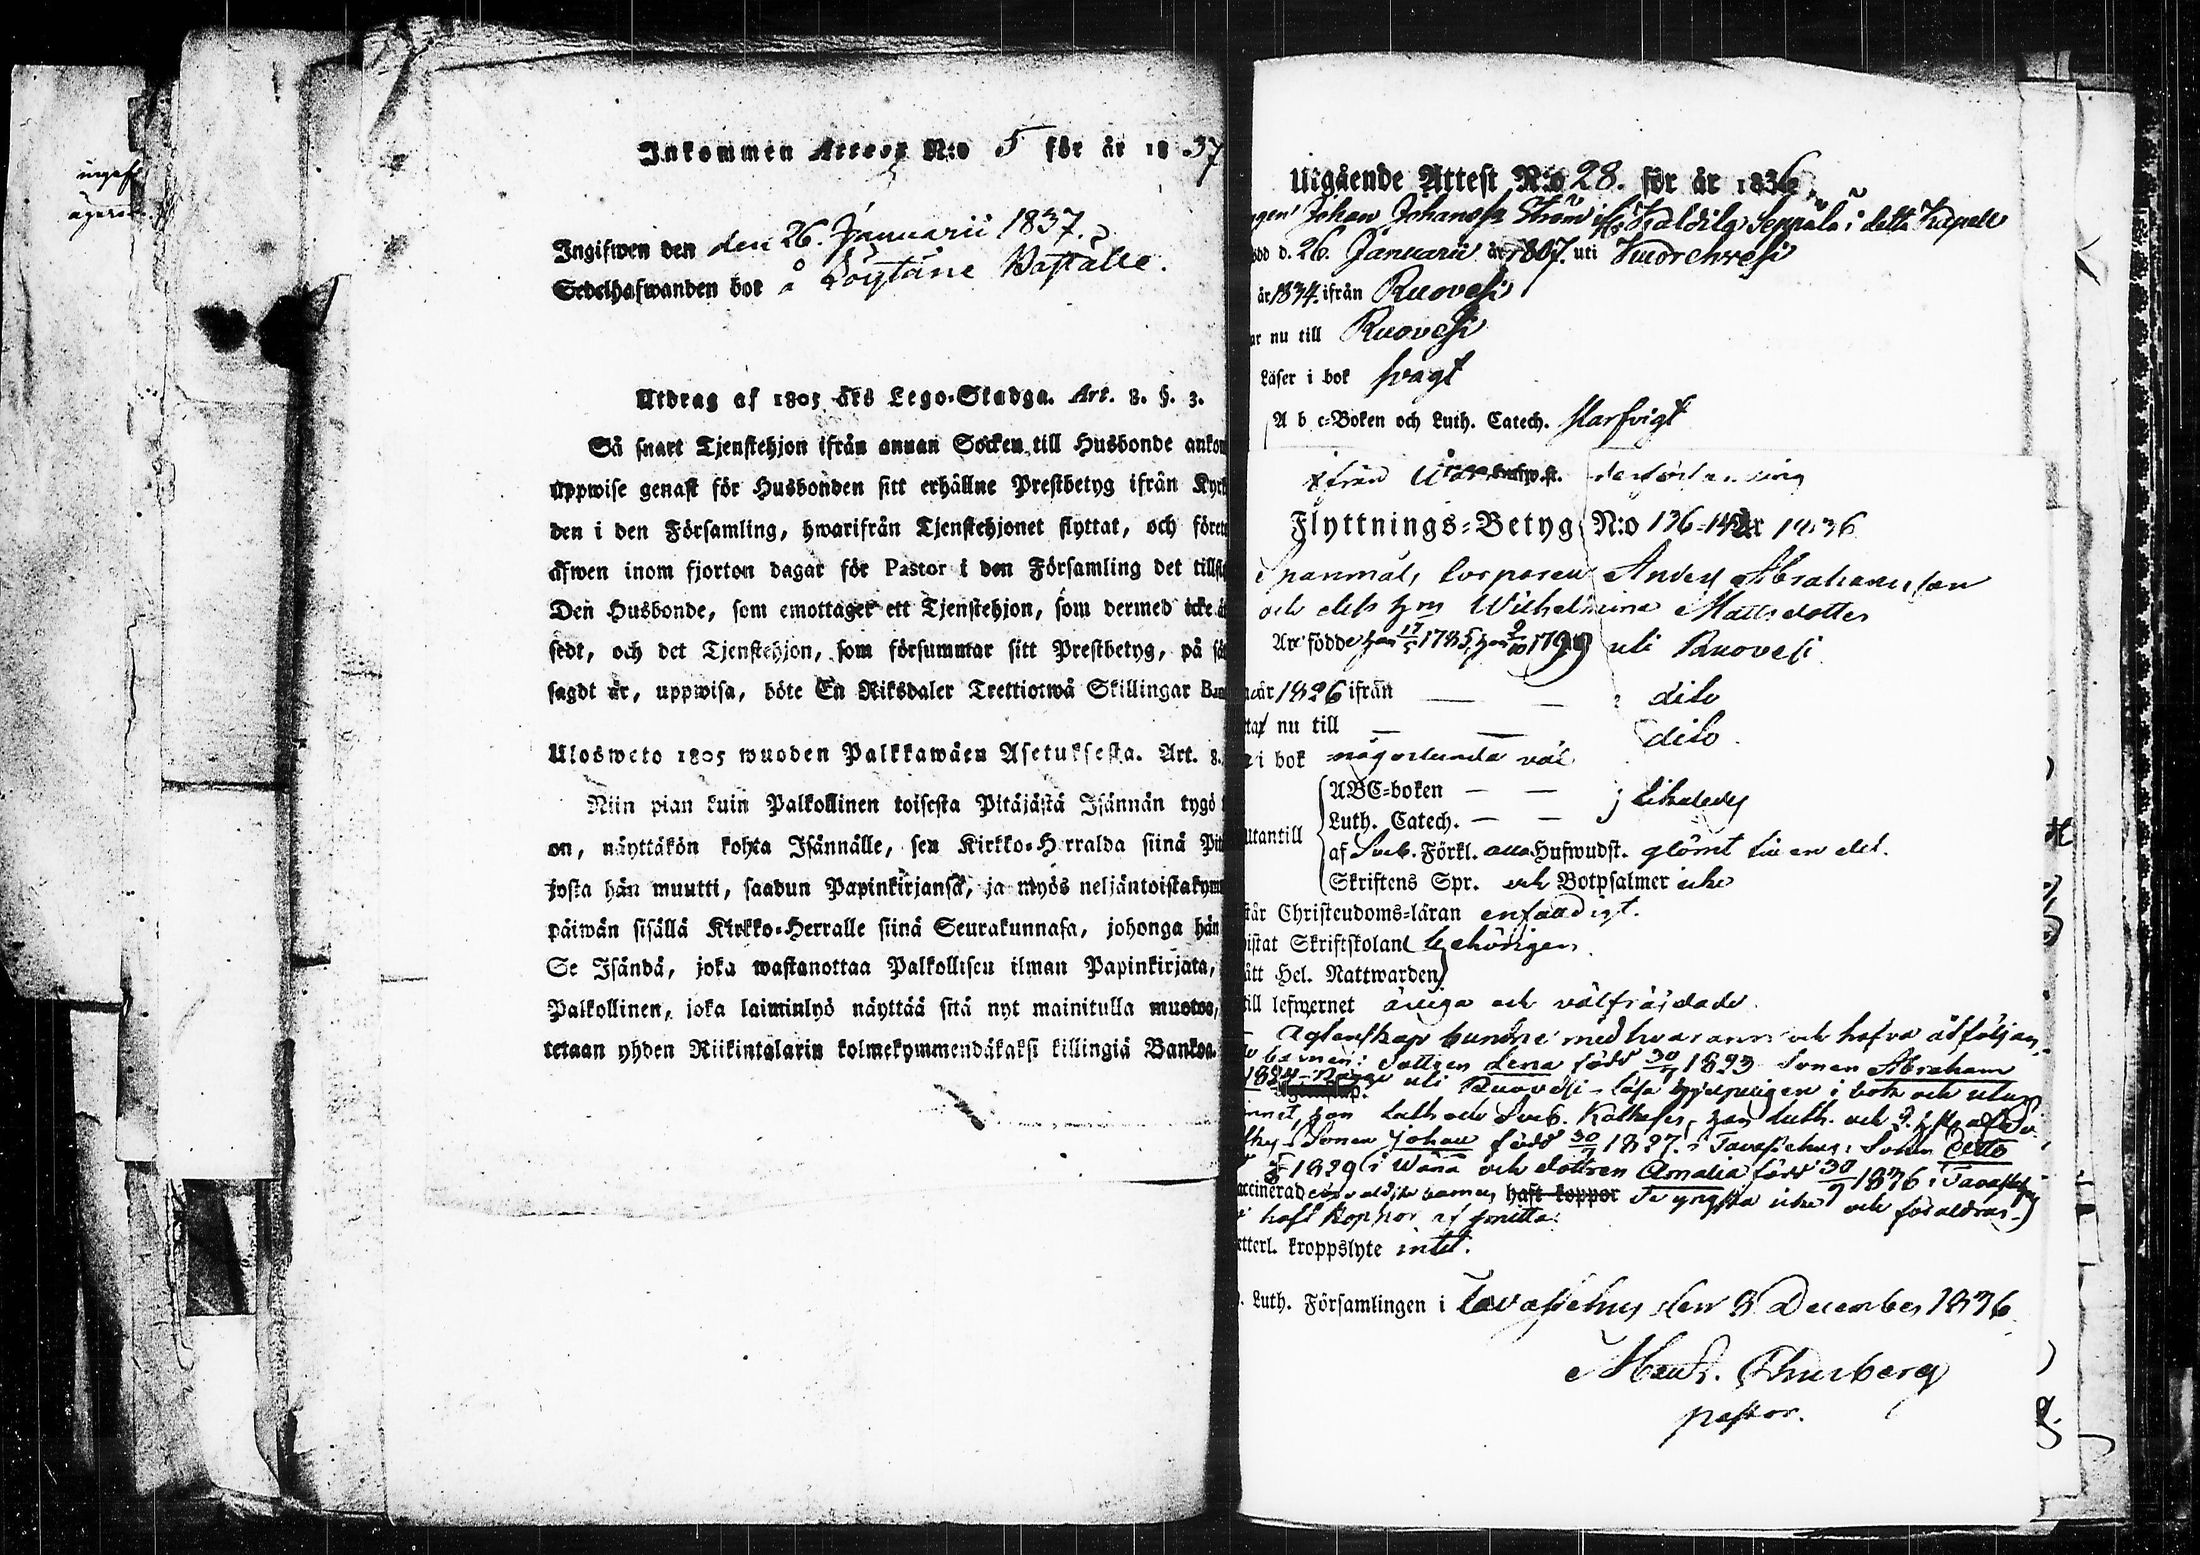 ingif
ägaren
Inkommen Attest N:o 5 för år 1837
Ingifwen den den 26. Januarii 1837.
Sedelhafwanden bor å
Utdrag af 1805 års Lego-Stadga. Art. 8. §. 3.
Så snart Tjenstehjon ifrån annan Socken till Husbonde ankom
uppwise genast för Husbonden sitt erhållne Prestbetyg ifrån Kyrk
den i den Församling, hwarifrån Tjenstehjonet flyttat, och förete
äfwen inom fjorton dagar för Pastor i den Församling det tillfly
Den Husbonde, som emottager ett Tjenstehjon, som dermed icke ä
sedt, och det Tjenstehjon, som försummar sitt Prestbetyg, på sä
sagdt är, uppwisa, böte En Riksdaler Trettiotwå Skillingar Ban
Ulosweto 1805 wuoden Palkkawäen Asetuksesta. Art. 8.
Niin pian kuin Palkollinen toisesta Pitäjästä Isännän tygö
on, näyttäkön kohta Isännälle, sen Kirkko-Herralda siinä Pit
josta hän muutti, saadun Papinkirjansa, ja myös neljäntoistakym
päiwän sisällä Kirkko-Herralle siinä Seurakunnasa, johonga hän
Se Isändä, joka wastanottaa Palkollisen ilman Papinkirjata,
Palkollinen, joka laiminlyö näyttää sitä nyt mainitulla muotoa,
tetaan yhden Riikintalarin kolmekymmendäkaksi killingiä Bankoa.
Utgående Attest N:o 28. för år 1836
Johan Johansson Ström ifrån Seppälä i detta Kapell
ödd d. 26. Januarii år 1807. uti
år 1834. ifrån Ruovesi
ar nu till Ruovesi
Läser i bok svagt
A b c-Boken och Luth. Catech. Starfvigt
ifrån
Flyttnings-Betyg N:o 136-142 år 1836
Spanmåls Corporen Anders Abrahamsson
och dess h:u Wilhelmina Mattsdotter
Äre födde han 17/5 1785, hon 9/10 1799 uti Ruovesi
år 1826 ifrån — — dito
ta nu till — — dito.
i bok någorlunda väl
Utantill
ABC-boken — —
Luth. Catech. — — likaledes
af Sveb. Förkl. alla Hufwudst. glömt till en del.
Skriftens Spr. och Botpsalmer icke
tår Christendoms-läran enfaldigt.
istat Skriftskolan behörigen.
ått Hel. Nattwarden
till lefwernet ärliga och välfräjdade.
Ägtenskap bundne med hvarann och hafva åtföljan
de barnen: Dottren Lena född 30/ 1823 Sonen Abraham
1824 uti Ruovesi – läsa hjelpligen i bok och utan
Luth. och Sveb. Katkeser, han Luth. och 3. h:st. af Sv.
Sonen Johan född 30/ 1827. i Tavastehus; Sonen Otto
1829 i Wånå och dottren Amalia född 30/9 1836 i Tavastehus
accinerade äldste barnen haft koppor de yngsta icke och föräldrar
haft koppor af smitta.
etterl. kroppslyte intet.
. Luth. Församlingen i Tavastehus den 8 December 1836
Abrah. Thurberg
pastor.